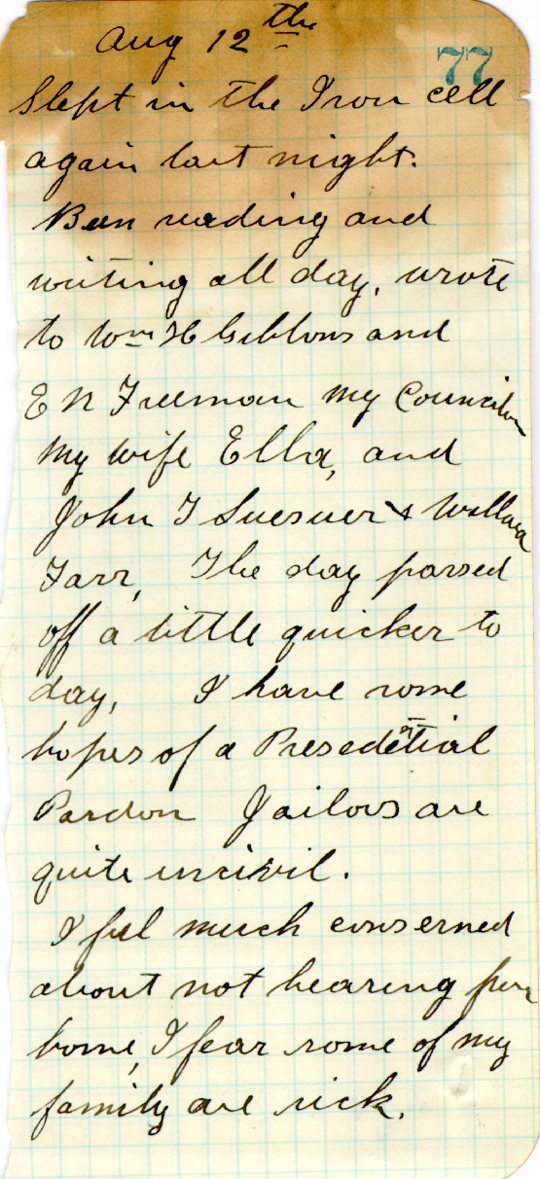 Aug 12th
77
Slept in the Iron cell
again last night.
Been reading and
writing all day, wrote
to Wm H Gibbons and
E N Freeman my Councilor
My wife Ella, and
John T Lesueur & Willard
Farr, The day passed
off a little quicker to
day, I have some
hopes of a Presedential
Pardon Jailors are
quite uncivil.
I feel much conserned
about not hearing from
home, I fear some of my
family are sick.